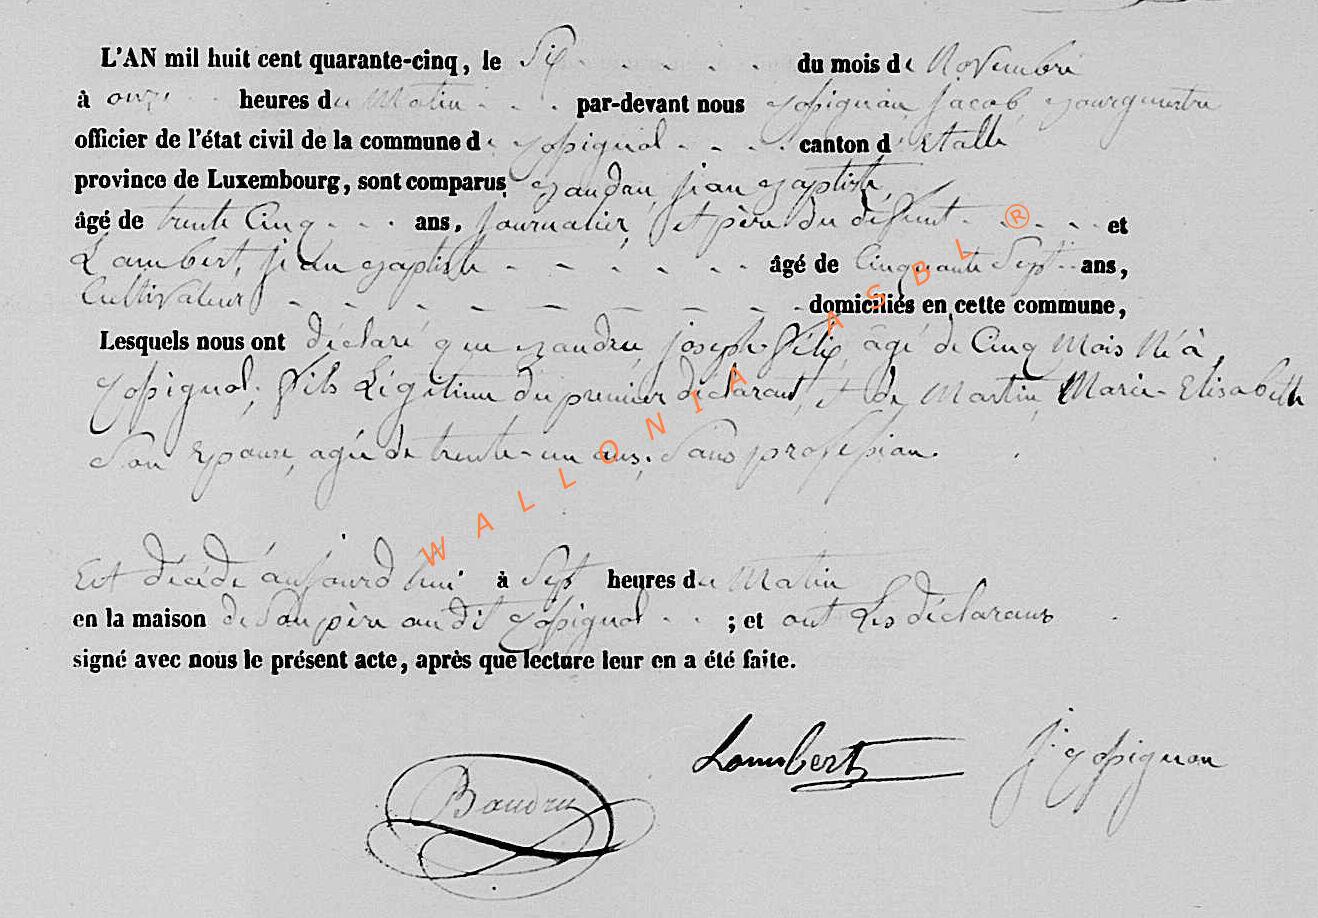 L'AN mil huit cent quarante-cinq, le Six du mois de Novembre
à onze heures du Matin par-devant nous Jacob, Bourgmestre
officier de l'état civil de la commune de canton d'Etalle
province de Luxembourg, sont comparus Baudru, jean Baptiste,
âgé de trente Cinq ans, Journalier, et père du défunt et
Lambert, jean Baptiste âgé de Cinquante Sept ans,
Cultivateur domiciliés en cette commune,
Lesquels nous ont déclaré que Baudru, joseph félix, âgé de Cinq Mois Né à
fils Légitime du premier déclarant, et de Martin, Marie-Elisabeth
Son Epouse, agée de trente-un ans, Sans profession.
Est décédé aujourd'hui à Sept heures du Matin
en la maison de Son père audit ; et ont Les déclarans
signé avec nous le présent acte, après que lecture leur en a été faite.
Lambert
Baudru
WALLONIA ASBL ®